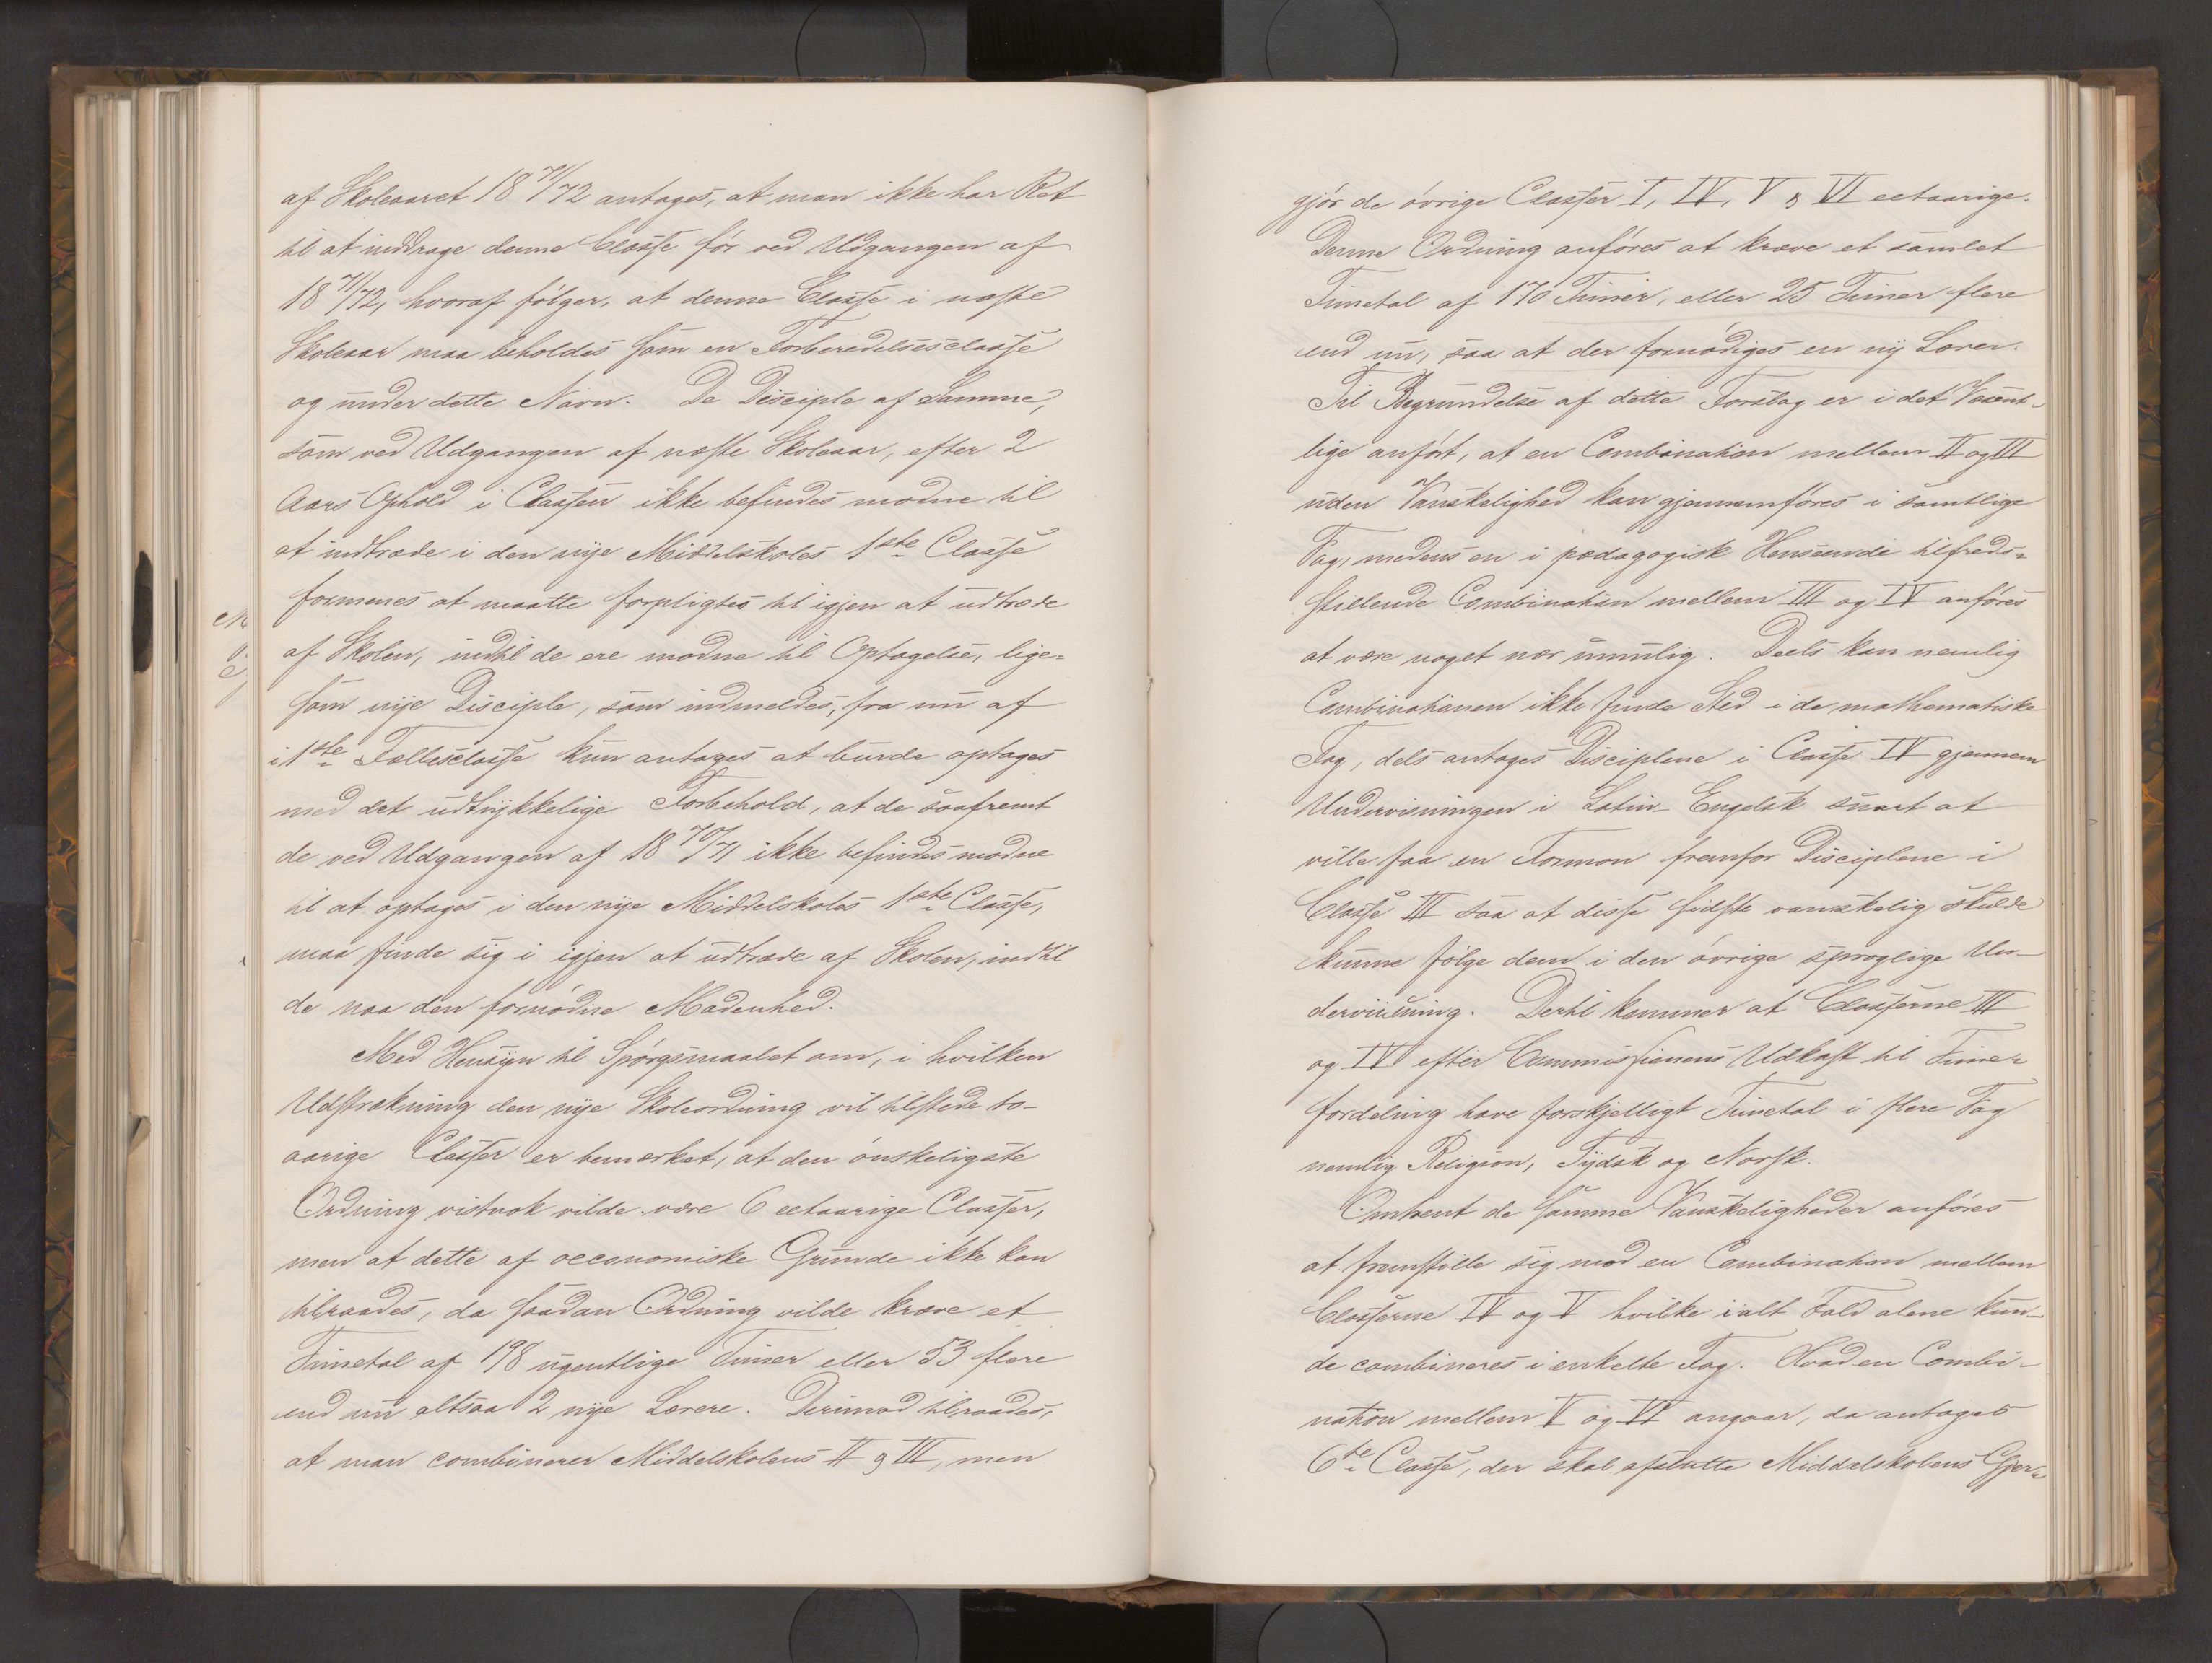 af Skoleaaret 18 71/72 antages, at man ikke har Ret
til at inddrage denne Classe før ved Udgangen af
18 71/72, hvoraf følger, at denne Classe i næste
Skoleaar maa beholdes som en Forberedelsesclasse
og under dette Navn. De Disciple af Samme,
som ved Udgangen af næste Skoleaar, efter 2
Aars Ophold i Classen ikke befindes modne til
at indtræde i den nye Middelskoles 1ste Classe
formenes at maatte forpligtes til igjen at udtræde
af Skolen, indtil de ere modne til Optagelse, lige=
som nye Disciple, som indmeldes, fra nu af
i 1ste Fællesclasse kun antages at burde optages
med det udtrykkelige Forbehold, at de saafremt
de ved Udgangen af 18 70/71 ikke befindes modne
til at optages i den nye Middelskoles 1ste Classe,
maa finde sig i igjen at udtræde af Skolen, indtil
de naa den fornødne Modenhed.
Med Hensyn til Spørgsmaalet om, i hvilken
Udstrækning den nye Skoleordning vil tilstede to-
aarige Classer er bemærket, at den ønskeligste
Ordning vistnok vilde være 6 eetaarige Classer,
men at dette af oeconomiske Grunde ikke kan
tilraades, da saadan Ordning vilde kræve et
Timetal af 198 ugentlige Timer eller 53 flere
end nu altsaa 2 nye Lærere. Derimod tilraades,
at man combinerer Middelskolens II g III, men
gjør de øvrige Classer I, IV, V g VI eetaarige.
Denne Ordning anføres at kræve et samlet
Timetal af 170 Timer, eller 25 Timer flere
end nu, saa at der fornødiges en ny Lærer.
Til Begrundelse af dette Forslag er i det Væsent-
lige anført, at en Combination mellem II og III
uden Vanskelighed kan gjennemføres i samtlige
Fag, medens en i pædagogisk Henseende tilfreds=
stillende Combination mellem III og IV anføres
at være noget nær umulig. Deels kan nemlig
Combinationen ikke finde Sted i de mathematiske
Fag, dels antages Disciplene i Classe IV gjennem
Undervisningen i Latin-Engelsk snart at
ville faa en Formon fremfor Disciplene i
Classe III saa at disse sidste vanskelig skulde
kunne følge dem i den øvrige sproglige Un-
derviisning. Dertil kommer at Classerne III
og IV efter Commissionens Udkast til Time=
fordeling have forskjelligt Timetal i flere Fag
nemlig Religion, Tydsk og Norsk.
Omtrent de samme Vanskeligheder anføres
at fremstille sig mod en Combination mellem
Classerne IV og V hvilke ialt Fald alene kun-
de combineres i enkelte Fag. Hvad en Combi-
nation mellem V og VI angaar, da antages
6te Classe, der skal afslutte Middelskolens Gjer=